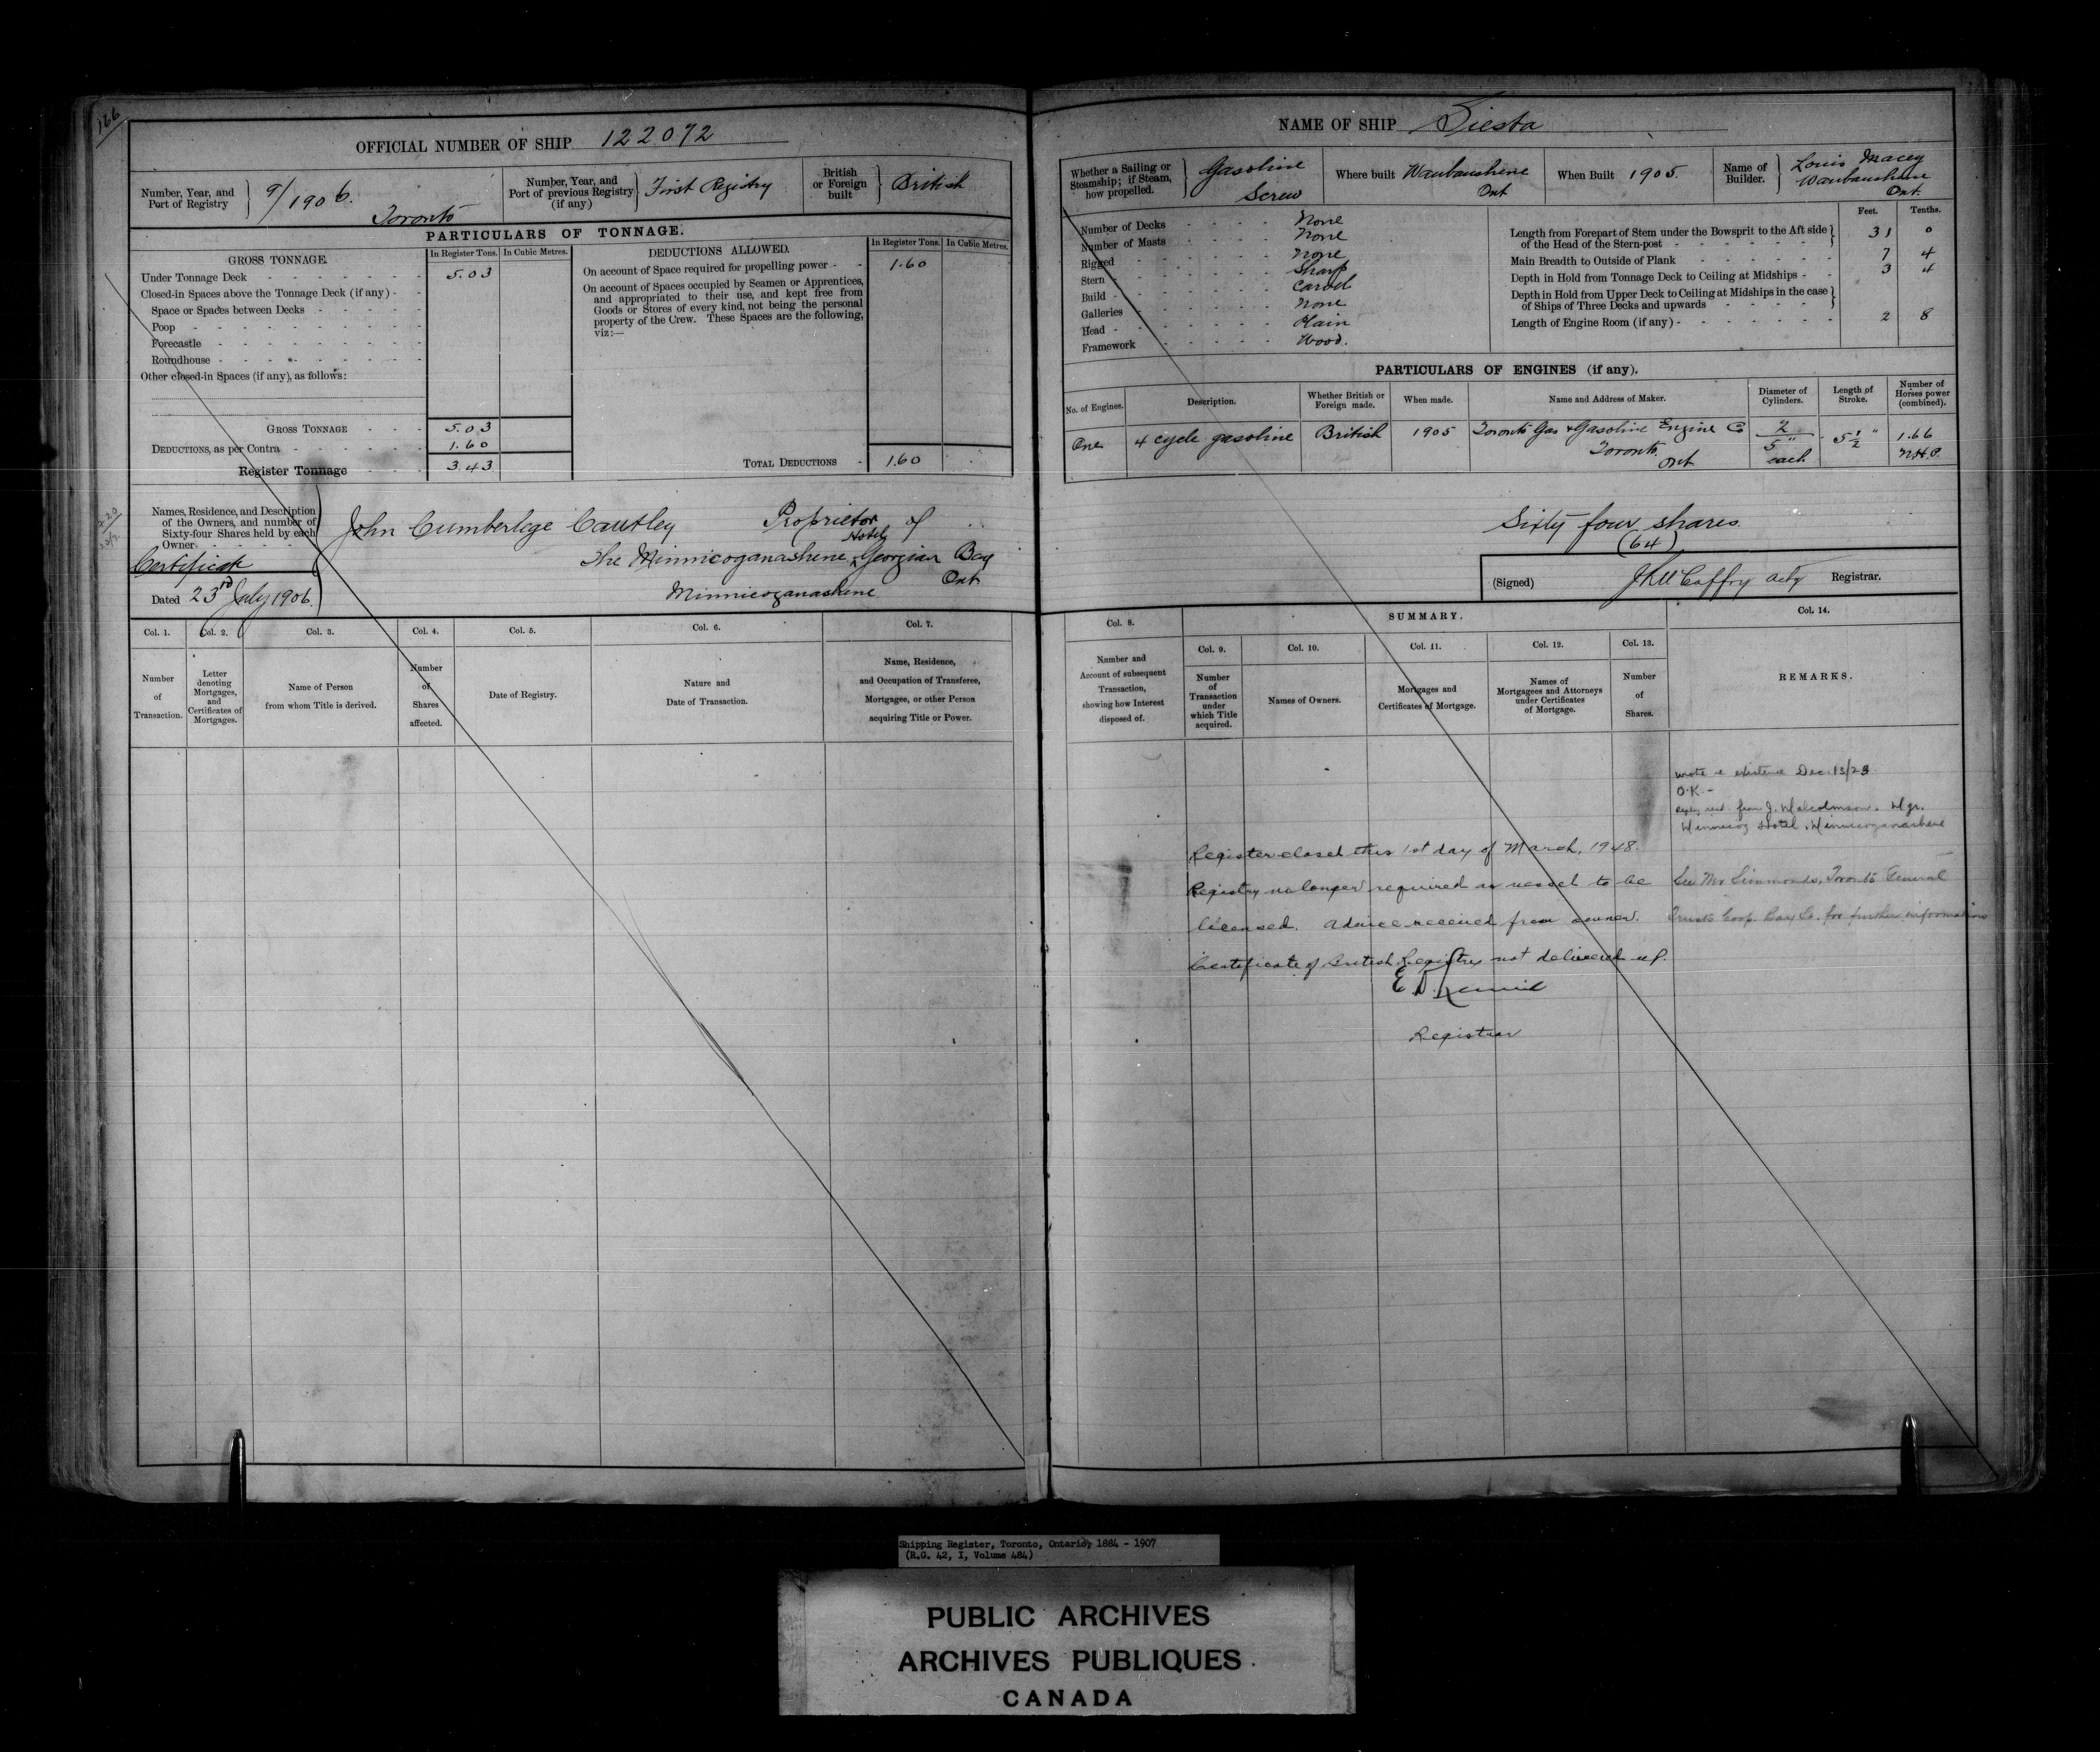 166
OFFICIAL NUMBER OF SHIP 122072
Number, Year, and Port of Registry } 9/1906. Toronto
Number, Year, and Port of previous Registry (if any) } First Registry
British or Foreign built } British
PARTICULARS OF TONNAGE.
GROSS TONNAGE.
In Register Tons. In Cubic Metres.
DEDUCTIONS ALLOWED.
In Register Tons. In Cubic Metres.
Under Tonnage Deck - - - - - - 5.03
Closed-in Spaces above the Tonnage Deck (if any) - -
Space or Spaces between Decks - - - - -
Poop - - - - - - - - -
Forecastle - - - - - - - -
Roundhouse - - - - - - - -
Other closed-in Spaces (if any), as follows:
On account of Space required for propelling power - - 1.60
On account of Spaces occupied by Seamen or Apprentices,
and appropriated to their use, and kept free from
Goods or Stores of every kind, not being the personal
property of the Crew. These Spaces are the following,
viz:—
GROSS TONNAGE - - - 5.03
DEDUCTIONS, as per Contra - - - - - 1.60
Register Tonnage - - - 3.43
TOTAL DEDUCTIONS - 1.60
Names, Residence, and Description
of the Owners, and number of
Sixty-four Shares held by each
Owner - - - - - -
John Cumberlege Cautley Proprietor of
Hotel
The Minnicoganashene ^ Georgian Bay
Ont
Minnicoganashene
Certificate
Dated 23rd July 1906.
Col. 1. Col. 2. Col. 3. Col. 4. Col. 5. Col. 6. Col. 7.
Number of Transaction.
Letter denoting Mortgages, and Certificates of Mortgages.
Name of Person from whom Title is derived.
Number of Shares affected.
Date of Registry.
Nature and Date of Transaction.
Name, Residence, and Occupation of Transferee, Mortgagee, or other Person acquiring Title or Power.
NAME OF SHIP Siesta
Whether a Sailing or Steamship; if Steam, how propelled. } Gasoline Screw
Where built Waubaushene Ont
When Built 1905.
Name of Builder. } Louis Macey Waubaushene Ont.
Number of Decks - - - - None
Number of Masts - - - - None
Rigged - - - - - None
Stern - - - - - Sharp
Build - - - - - Carvel
Galleries - - - - - None
Head - - - - - Plain
Framework - - - - Wood.
Feet. Tenths.
Length from Forepart of Stem under the Bowsprit to the Aft side
of the Head of the Stern-post - - - - - - - } 31 0
Main Breadth to Outside of Plank - - - - - - 7 4
Depth in Hold from Tonnage Deck to Ceiling at Midships - - 3 4
Depth in Hold from Upper Deck to Ceiling at Midships in the case
of Ships of Three Decks and upwards - - - - - }
Length of Engine Room (if any) - - - - - - - 2 8
PARTICULARS OF ENGINES (if any).
No. of Engines. Description. Whether British or Foreign made. When made. Name and Address of Maker. Diameter of Cylinders. Length of Stroke. Number of Horses power (combined).
One 4 cycle gasoline British 1905 Toronto Gas & Gasoline Engine Co Toronto. Ont 2 5" each 5½" 1.66 N.H.P.
Sixty four shares
(64)
(Signed) J McCaffry actg Registrar.
Col. 8. SUMMARY. Col. 14.
Col. 9. Col. 10. Col. 11. Col. 12. Col. 13.
Number and Account of subsequent Transaction, showing how Interest disposed of.
Number of Transaction under which Title acquired.
Names of Owners.
Mortgages and Certificates of Mortgage.
Names of Mortgagees and Attorneys under Certificates of Mortgage.
Number of Shares.
REMARKS.
wrote re existence Dec. 13/23
O.K. -
Reply recd. from J. Malcolmson. Mgr.
Minnicog Hotel, Minnicoganashene
Register closed this 1st day of March, 1948.
Registry no longer required as vessel to be
licensed. Advice received from owner.
Certificate of British Registry not delivered up.
See Mr Simmonds, Toronto General
Trusts Corp. Bay St. for further information
Registrar
Shipping Register, Toronto, Ontario, 1884 - 1907
(R.G. 42, I, Volume 484)
PUBLIC ARCHIVES
ARCHIVES PUBLIQUES
CANADA